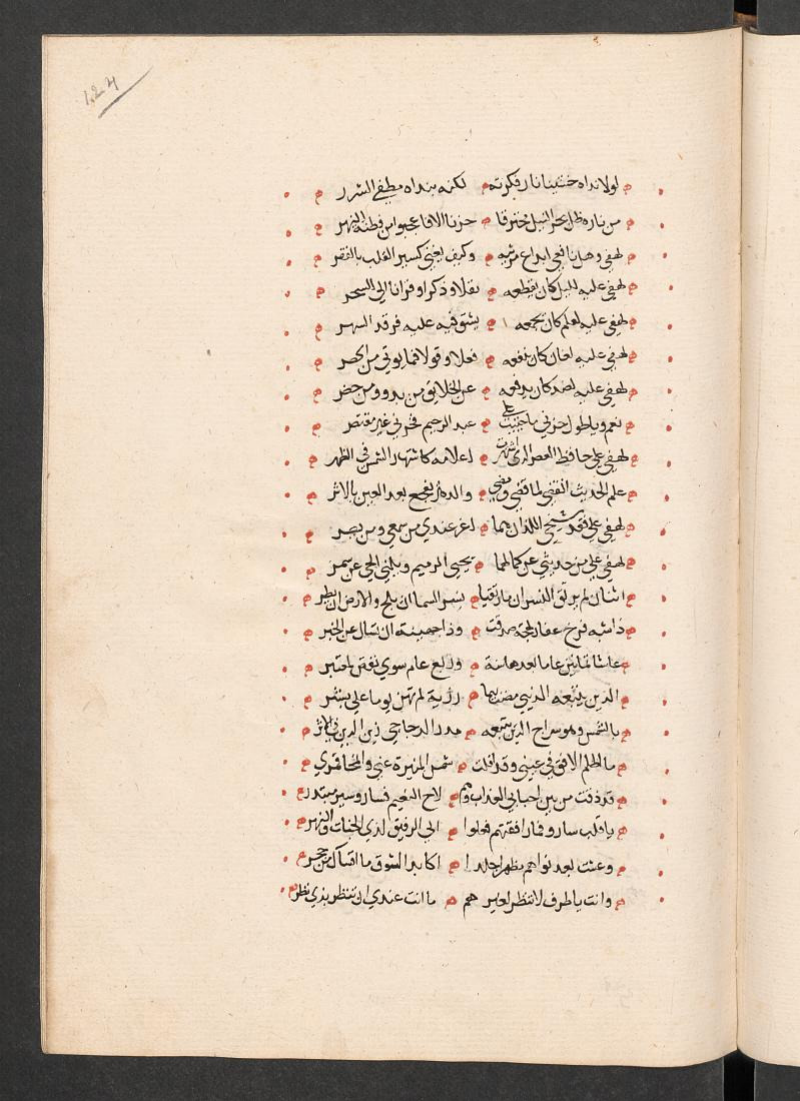 124
لولا نداه خشينا نار فكرته لكنه بنداه مطفي الشرر
من ناره ظل بحر النيل محترقا حزنا الا فاعجبوا من فطنة النهر
لهفي وهل نافعي ابداع مرثيه وكيف يغني كسير القلب بالفقر
لهفي عليه لليل كان يقطعه نفلا وذكرا وقرانا الي السحر
لهفي عليه لعلم كان يجمعه يشق فيه عليه فرقد السهر
لهفي عليه لعان كان ينفعه فعلا وقولا فما يوتي من الحصر
لهفي عليه لضد كان يدفعه عن الخلايق من بدو ومن حضر
نعم ويا طول حزني ما حييت علي عبد الرحيم فخزني غير مقتصر
لهفي علي حافظ العصر الذي اشتهرت اعلامه كاشتهار الشمس في الظهر
علم الحديث انقضي لما قضي ومضي والدهر يفجع بعد العين بالاثر
لهفي علي فقد شيخي اللذان هما اعز عندي من سمعي ومن بصر
لهفي علي من حديثي عن كمالهما يحيي الرميم ويلهي الحي عن سمر
اثنان لم يرتق النسران ما ارتقيا نسر السما ان يلح والارض ان يطر
ذا شبه فرخ عقاب لهجة صدقت وذا جهينة ان تسال عن الخبر
عاشا ثمانين عاما بعدها سنة وربع عام سوي نقص لمعتبر
الدين يتبعه الدنيي مضت بهما رزية لم تهن يوما علي بشر
بالشمس وهو سراج الدين يتبعه بدر الدياجي زين الدين في الاثر
ما اظلم الافق في عيني وقد افلت شمس المنيرة عني وانمحا قمري
قد ذقت من بين احبابي العذاب وهم لاح النعيم فساروا سير مبتدر
يا قلب ساروا وما رافقتهم فعلوا الي الرفيق لدي الجنات والنهر
وعشت بعد نواهم مظهرا جلدا اكابد الشوق ما اقساك من حجر
وانت يا طرف لا تنظر لغيرهم ما انت عندي ان تنظر بذي نظر